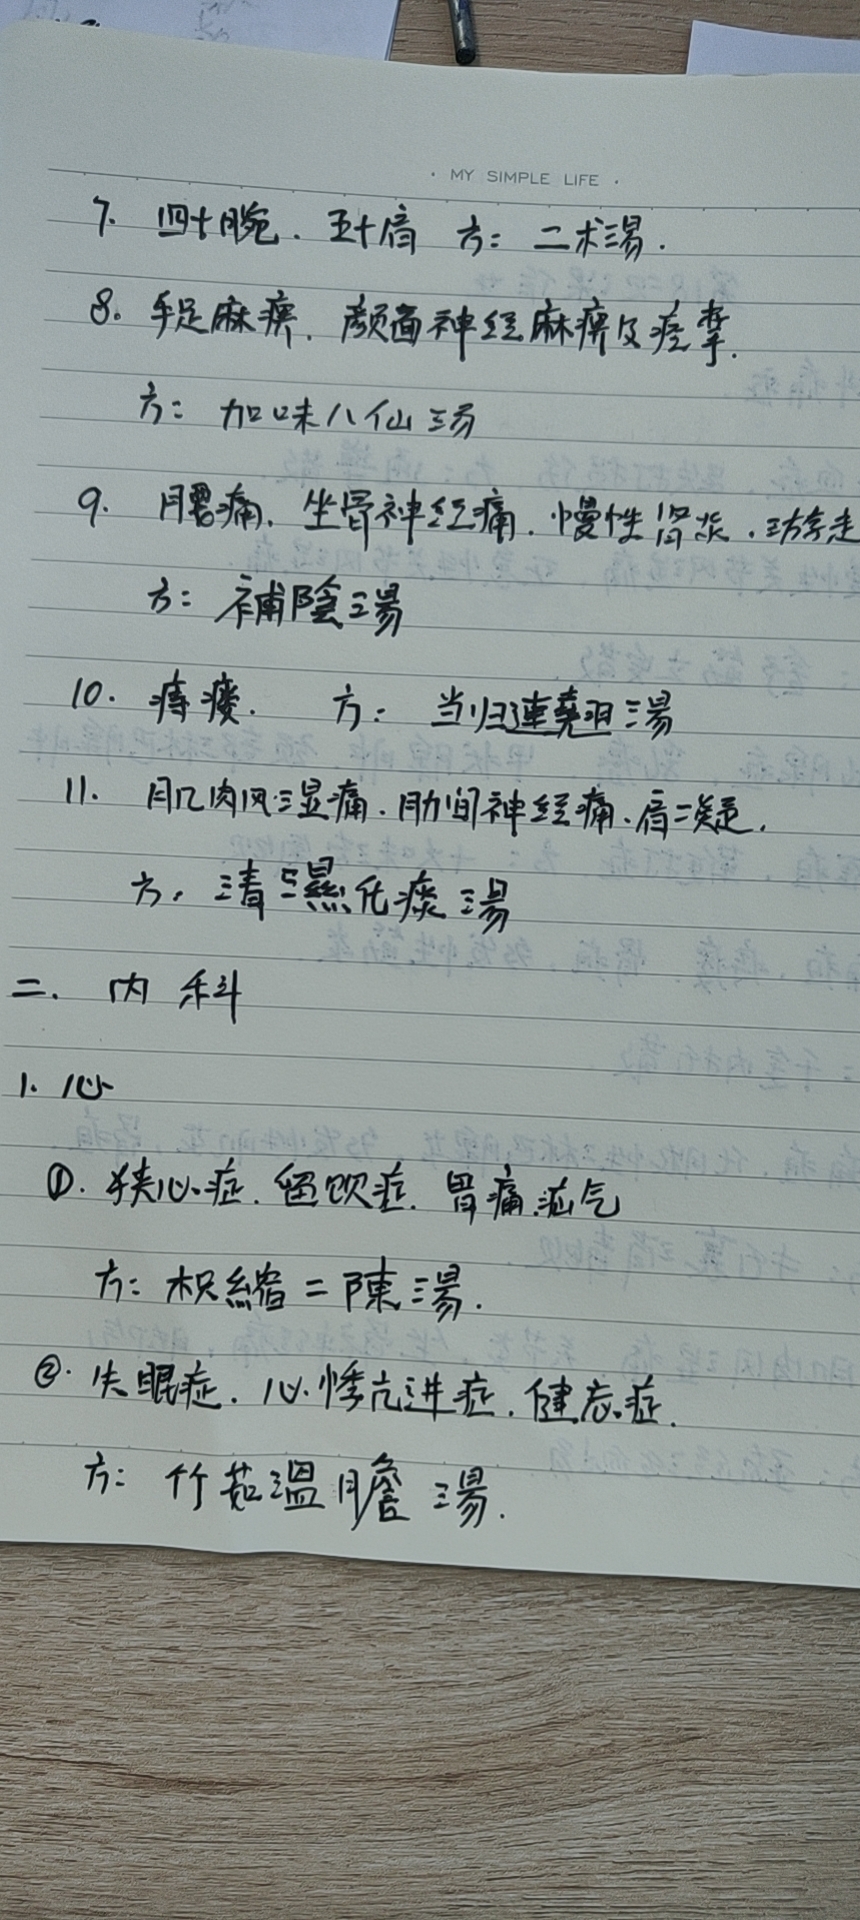 · MY SIMPLE LIFE ·
7. 四十腕. 五十肩 方: 二术湯.
8. 手足麻痹. 颜面神经麻痹及痉挛.
方: 加味八仙湯
9. 腰痛. 坐骨神经痛. 慢性肾炎. 游走
方: 補陰湯
10. 痔瘘. 方: 当归連翹湯
11. 肌肉风湿痛. 肋间神经痛. 肩凝.
方. 清濕化痰湯
二. 内科
1. 心
①. 狭心症. 留饮症. 胃痛. 疝气
方: 枳縮二陳湯.
②. 失眠症. 心悸亢进症. 健忘症.
方: 竹茹温膽湯.